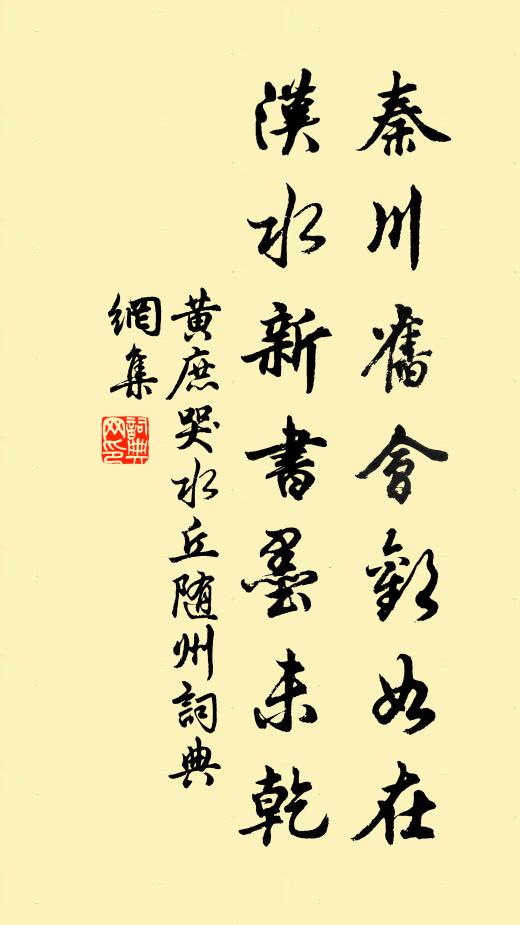 秦川舊會歡如在
漢水新書墨未乾
黃庶哭水丘随州詞典
網集
詞典網印